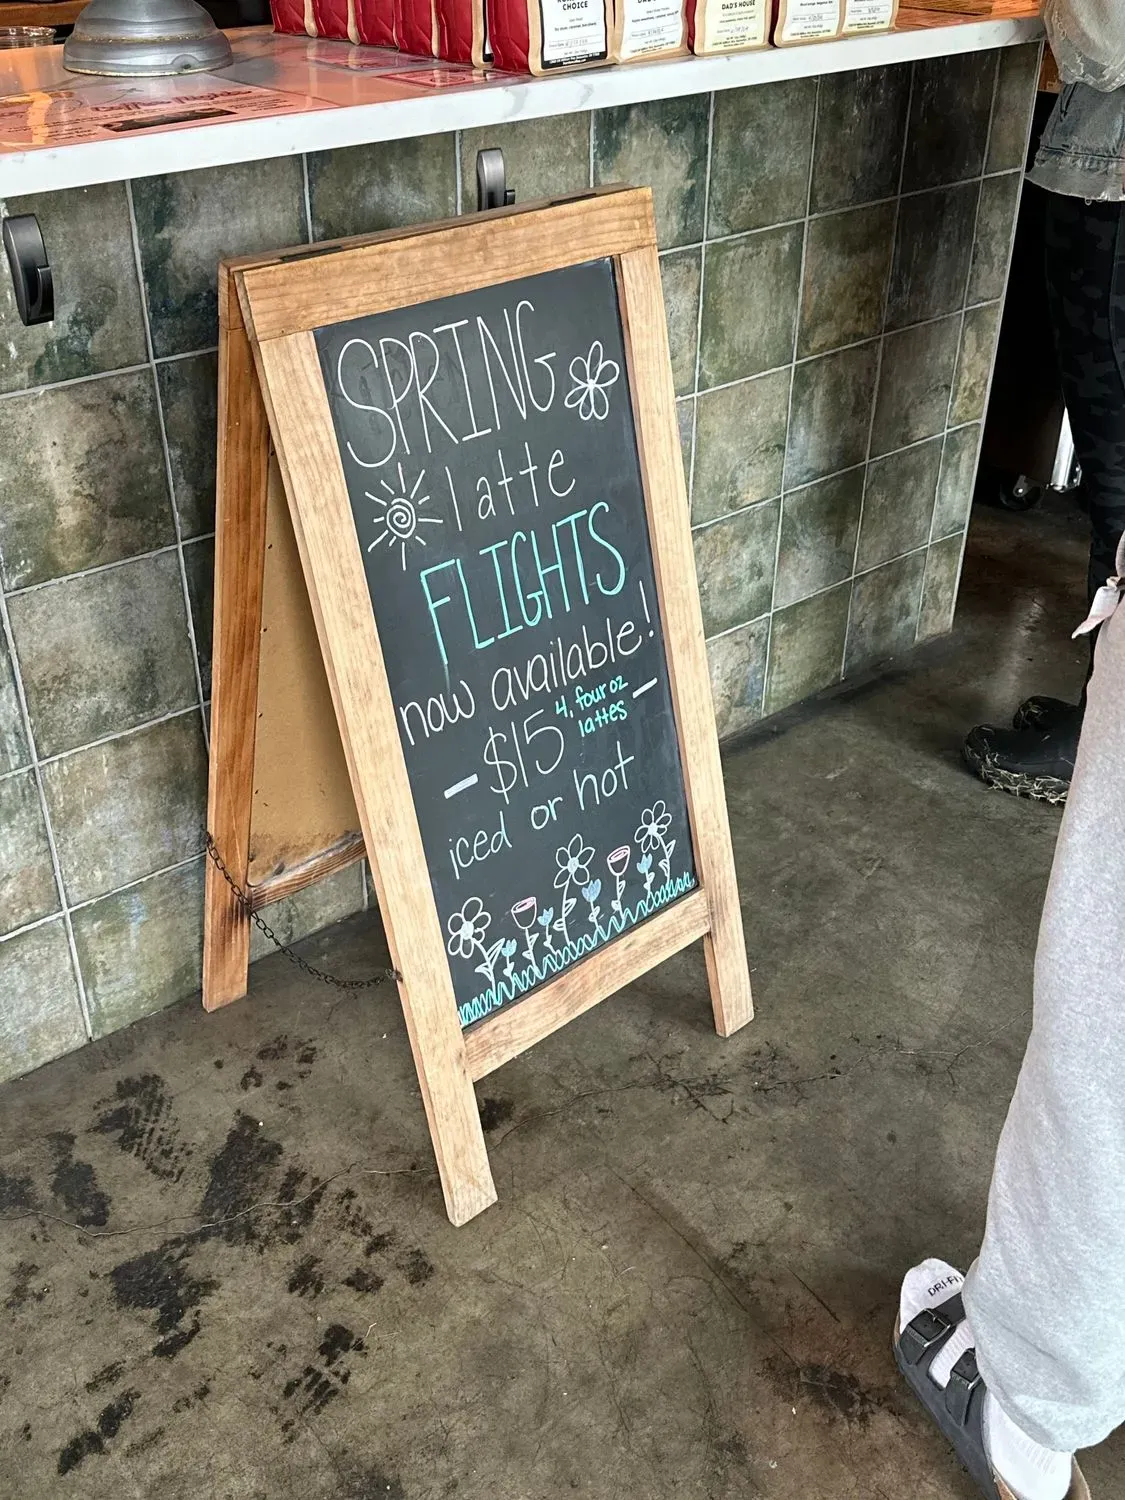 CHOICE
DAD'S HOUSE
SPRING
latte
FLIGHTS
now available!
- $15 4, four oz lattes -
iced or hot
DRI-FIT